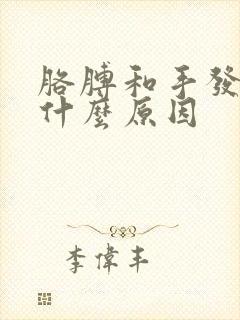 胳膊和手發
什麼原因
李偉丰